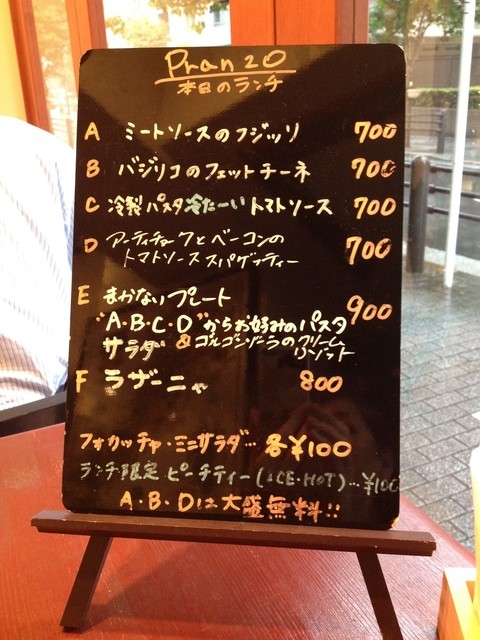 Pranzo
本日のランチ
A ミートソースのフジッリ 700
B バジリコのフェットチーネ 700
C 冷製パスタ冷たーいトマトソース 700
D アーティチョークとベーコンの
トマトソーススパゲッティー 700
E まかないプレート 900
"A・B・C・D"からお好みのパスタ
サラダ & ゴルゴンゾーラのクリーム
リゾット
F ラザーニャ 800
フォカッチャ・ミニサラダ… 各¥100
ランチ限定 ピーチティー(ICE・HOT)…¥100
A・B・Dは大盛無料!!